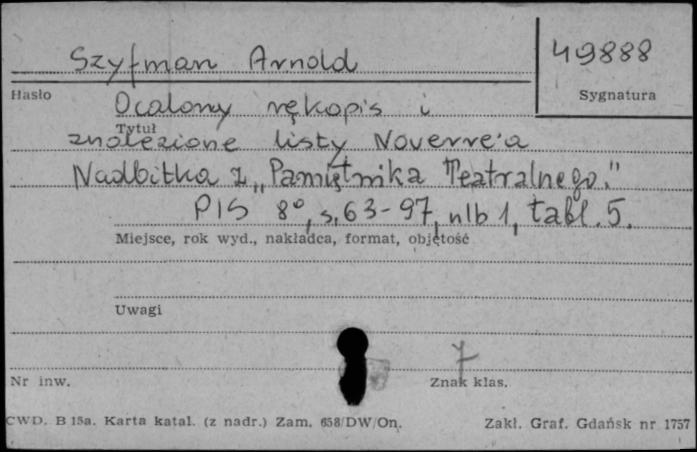 Szyfman Arnold
49888
Hasło
Sygnatura
Ocalony rękopis i
Tytuł
znalezione listy Noverre'a
Nadbitka z „Pamiętnika Teatralnego."
PIS 8°, s. 63-97, nlb 1, tabl. 5.
Miejsce, rok wyd., nakładca, format, objętość
Uwagi
7
Nr inw.
Znak klas.
CWD. B 15a. Karta katal. (z nadr.) Zam. 658/DW/On.
Zakł. Graf. Gdańsk nr 1757